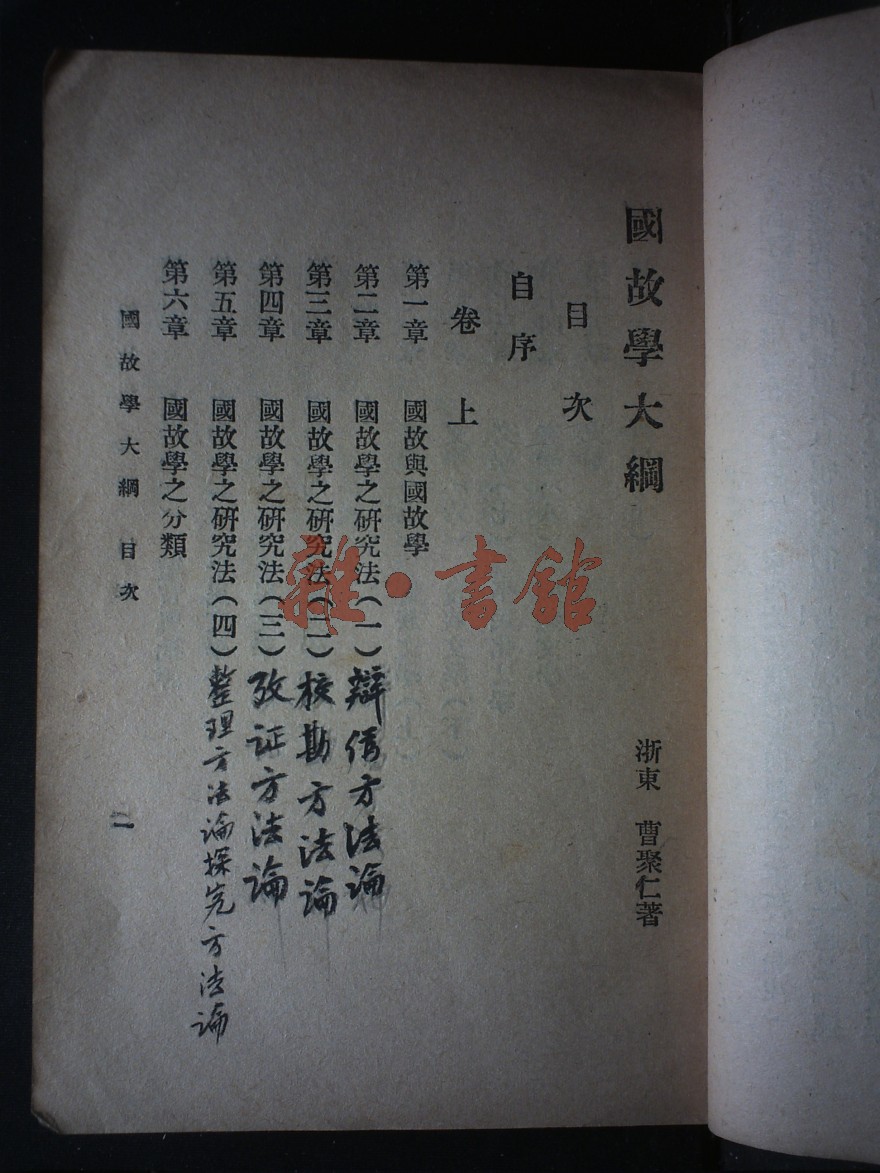 國故學大綱
浙東 曹聚仁著
目次
自序
卷上
第一章 國故與國故學
第二章 國故學之研究法(一)辯偽方法論
第三章 國故學之研究法(二)校勘方法論
第四章 國故學之研究法(三)攷证方法論
第五章 國故學之研究法(四)整理方法論探究方法論
第六章 國故學之分類
國故學大綱 目次
一
雜·書館